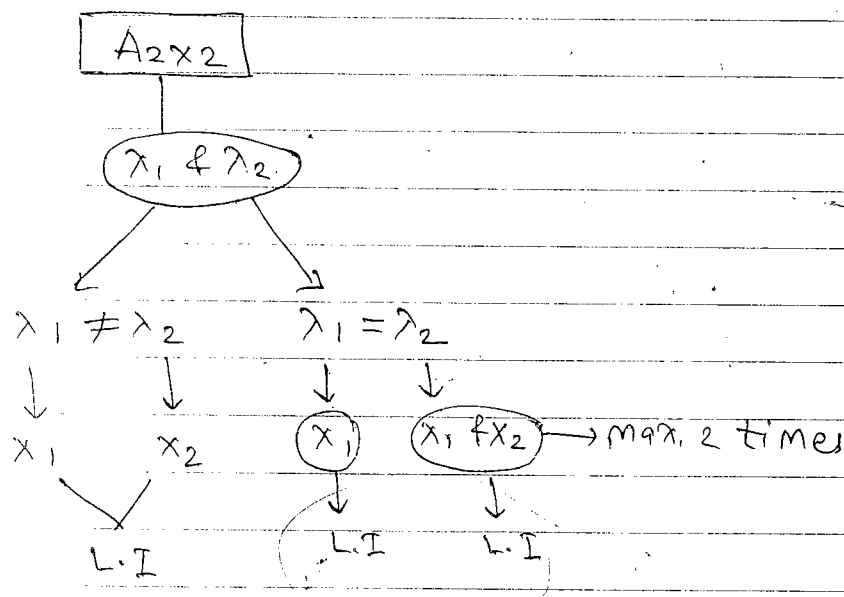 A2×2
λ1 & λ2
λ1 ≠ λ2 λ1 = λ2
x1 x2 x1 x1 & x2 → max. 2 times
L.I L.I L.I